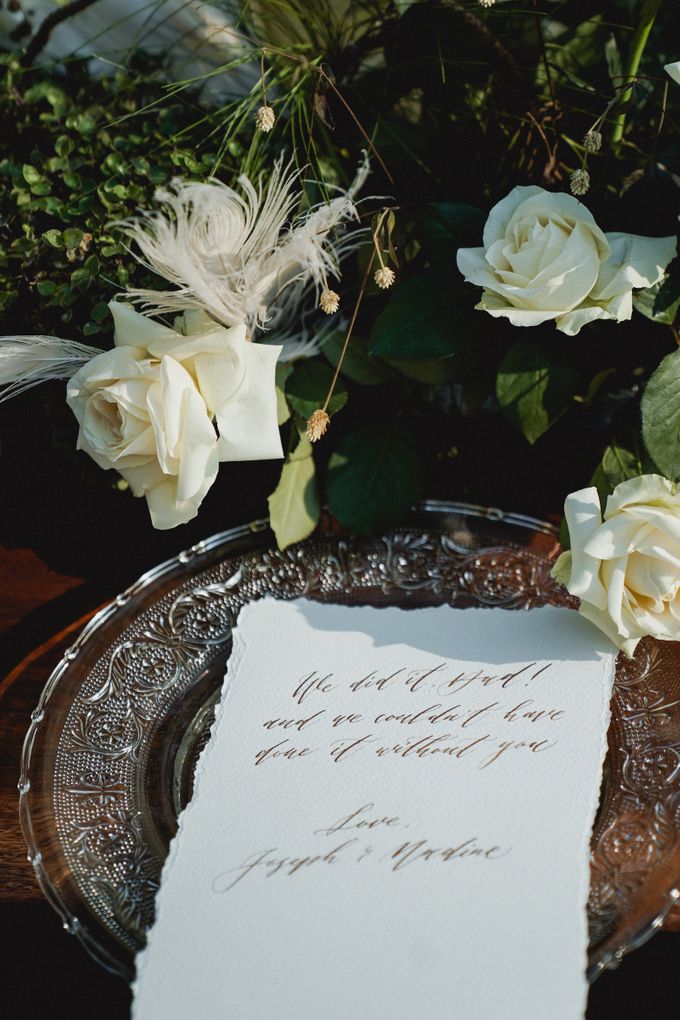 We did it, Dad!
and we couldn't have
done it without you
Love,
Joseph & Nadine